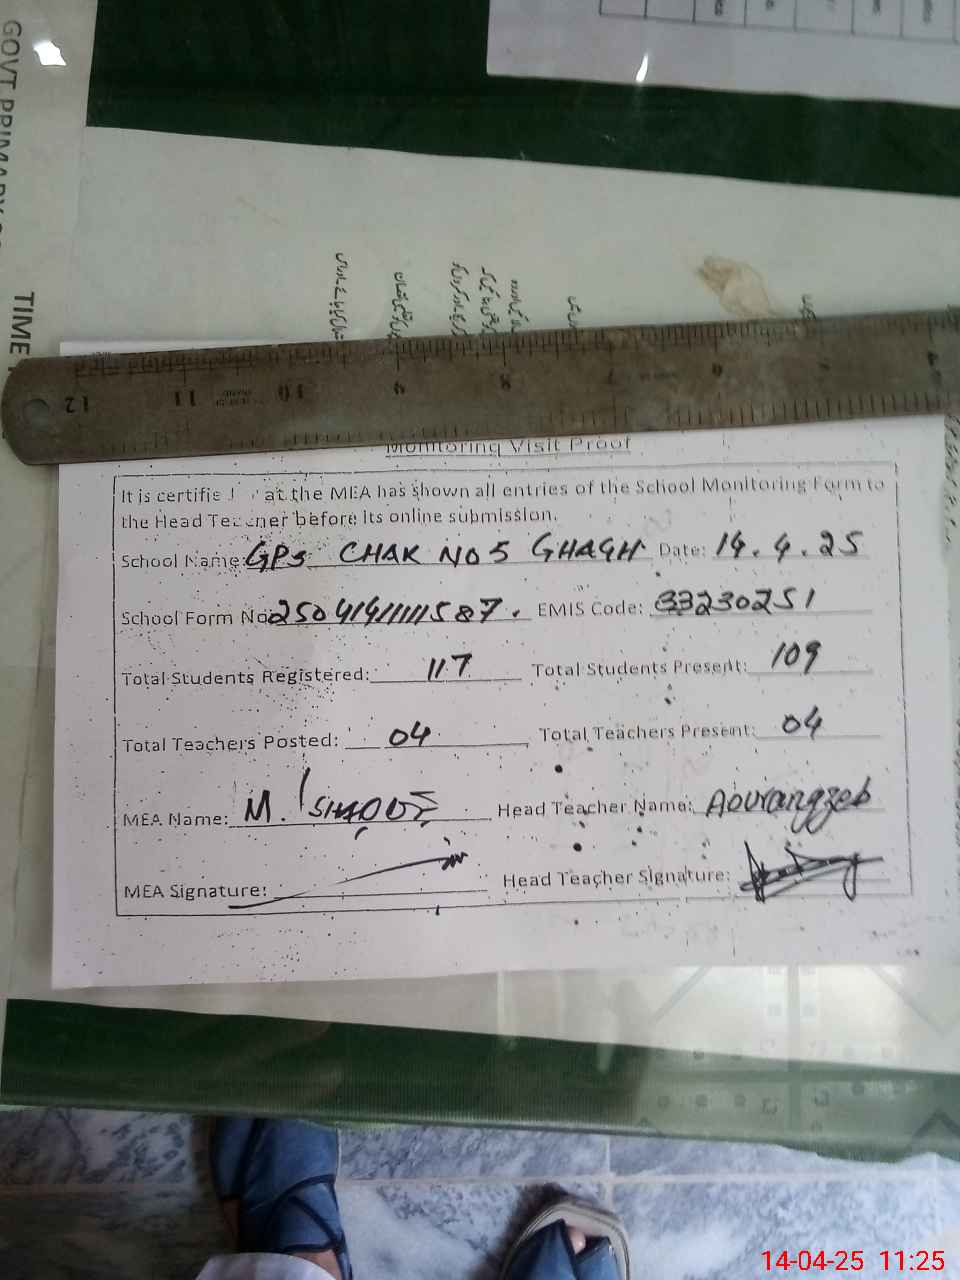 GOVT PRIMARY
TIME
12 11 10 9 8 7 6 4
Monitoring Visit Proof
It is certified that the MEA has shown all entries of the School Monitoring Form to
the Head Teacher before its online submission.
School Name: GPS CHAK NO 5 GHAGH Date: 14.4.25
School Form No: EMIS Code: 33230251
Total Students Registered: 117 Total Students Present: 109
Total Teachers Posted: 04 Total Teachers Present: 04
MEA Name: M. Head Teacher Name: Aourangzeb
MEA Signature: Head Teacher Signature:
14-04-25 11:25